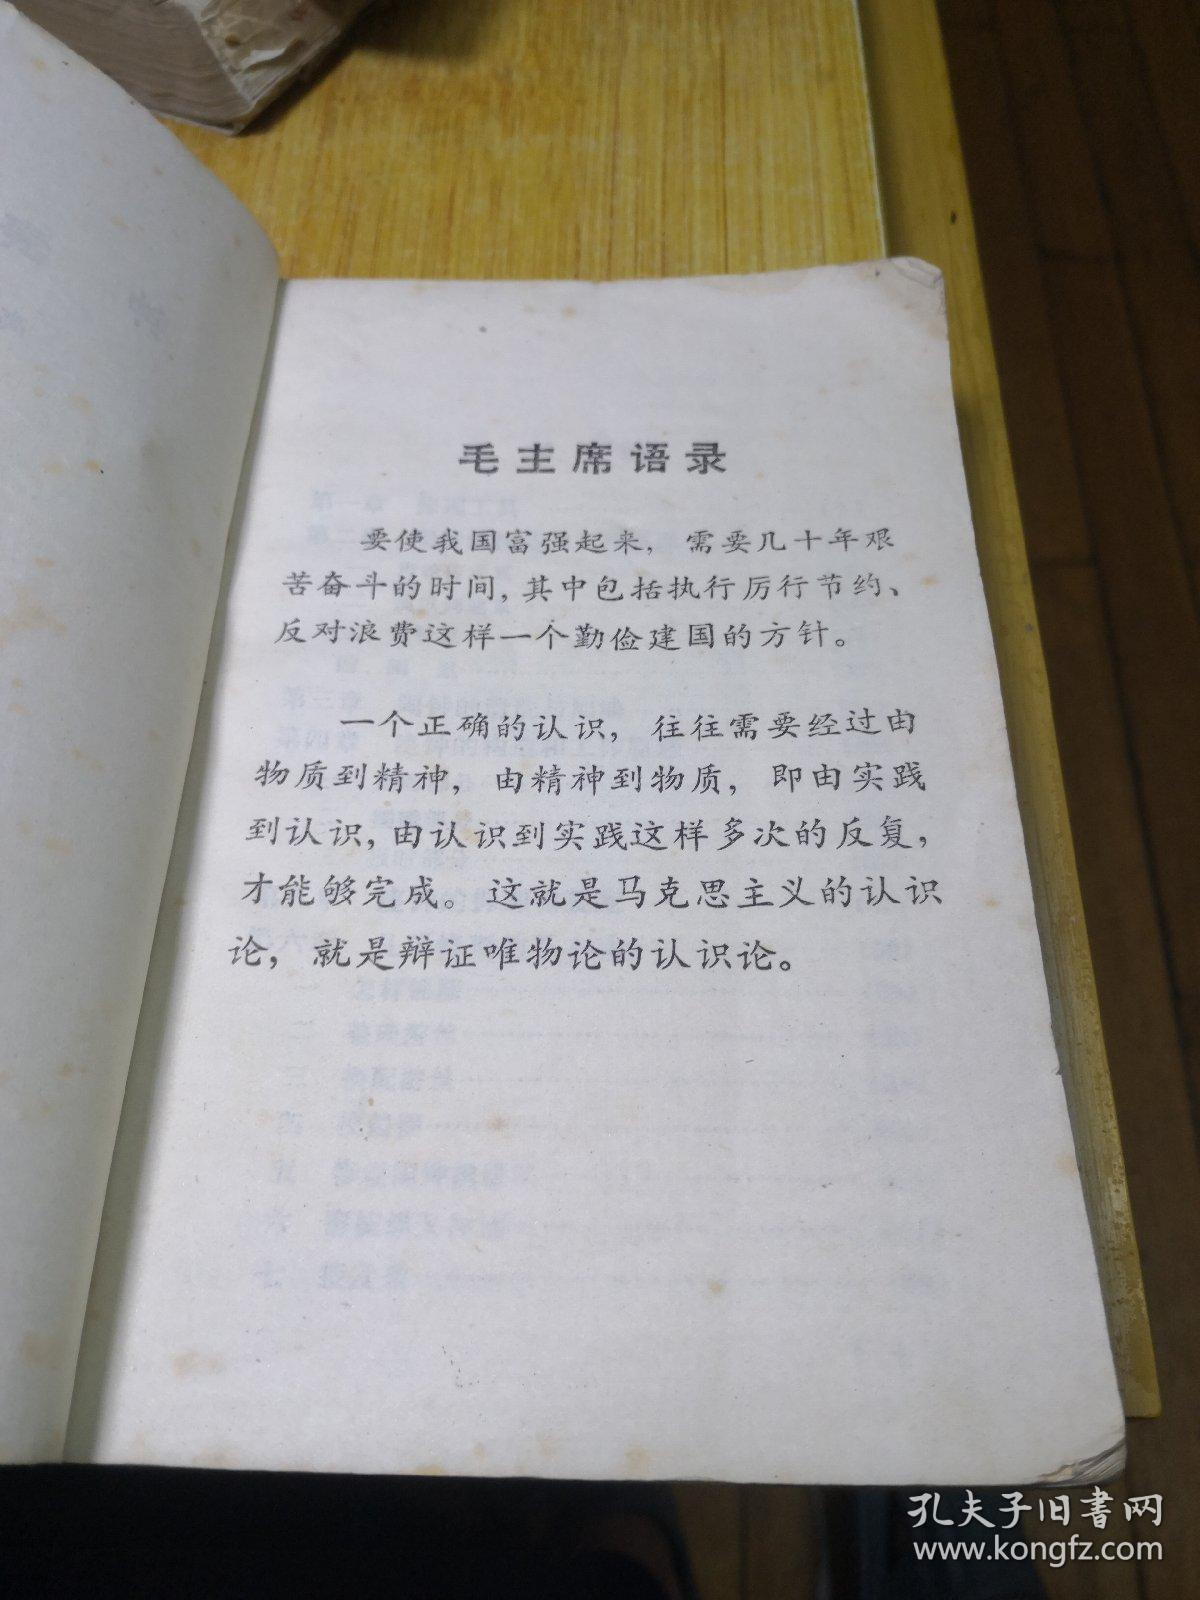 毛主席语录
要使我国富强起来，需要几十年艰
苦奋斗的时间，其中包括执行厉行节约、
反对浪费这样一个勤俭建国的方针。
一个正确的认识，往往需要经过由
物质到精神，由精神到物质，即由实践
到认识，由认识到实践这样多次的反复，
才能够完成。这就是马克思主义的认识
论，就是辩证唯物论的认识论。
孔夫子旧书网
www.kongfz.com